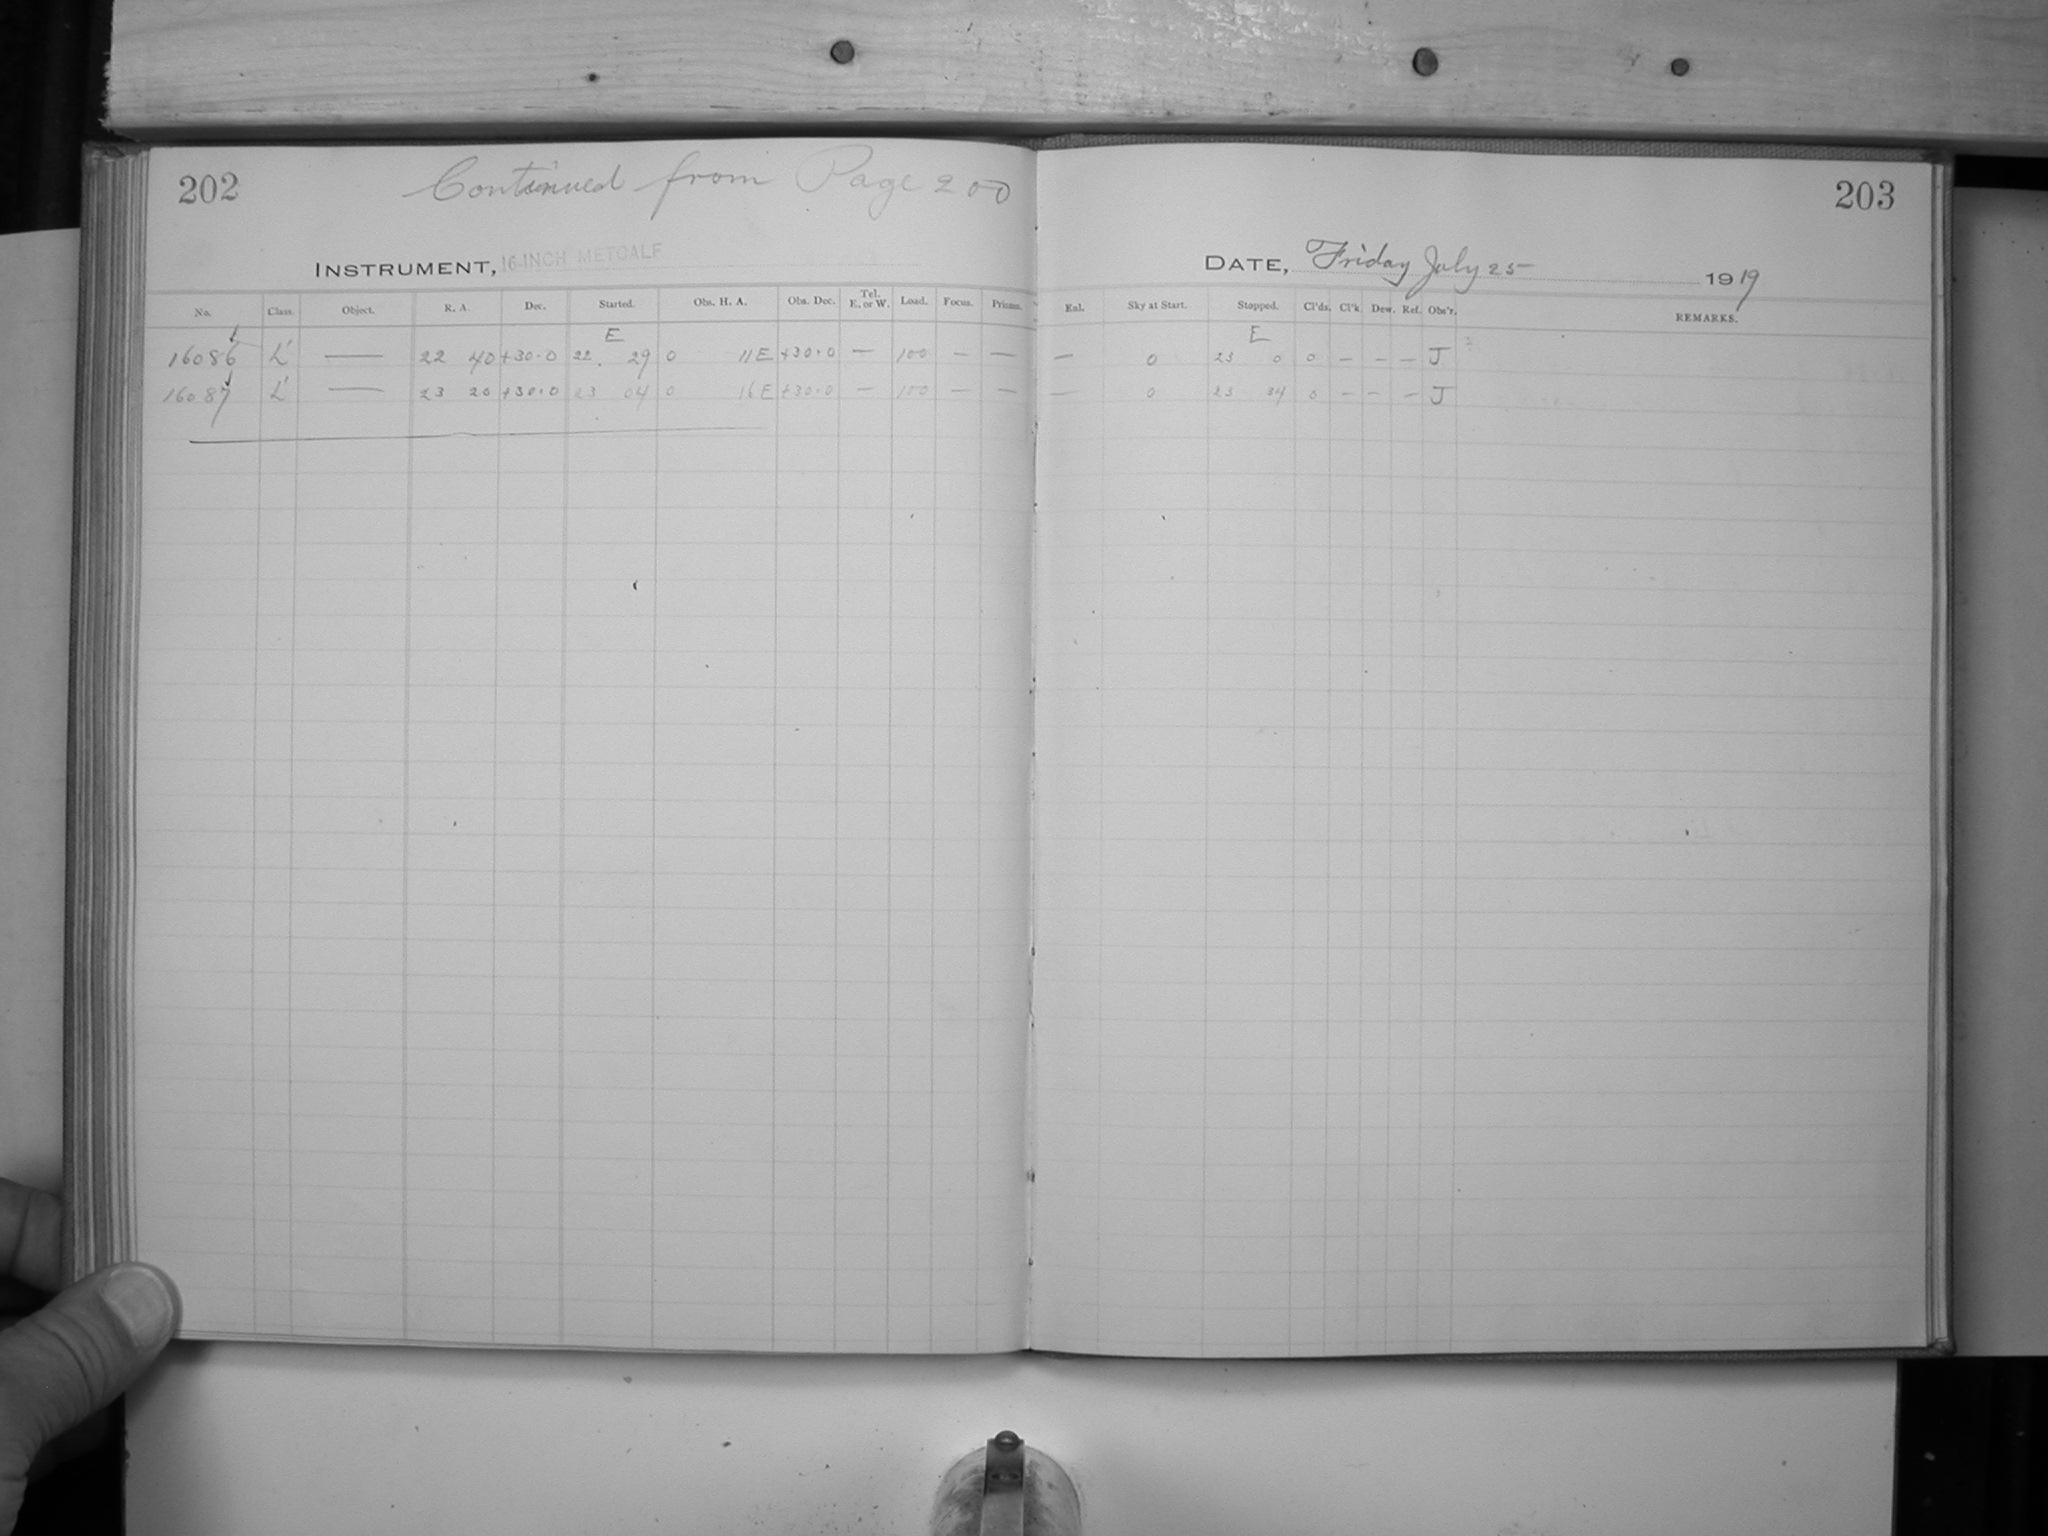 202 Continued from Page 200
INSTRUMENT, 16-INCH METCALF
No. Class. Object. R. A. Dec. Started. Obs. H. A. Obs. Dec. Tel. E. or W. Load. Focus. Prisms.
E
16086 L' — 22 40 +30.0 22 29 0 11 E +30.0 — 100 — —
16087 L' — 23 20 +30.0 23 04 0 16 E +30.0 — 100 — —
203
DATE, Friday July 25 1919
Enl. Sky at Start. Stopped. Cl'ds. Cl'k. Dew. Ref. Obs'r. REMARKS.
E
— 0 23 0 0 — — — J
— 0 23 34 0 — — — J